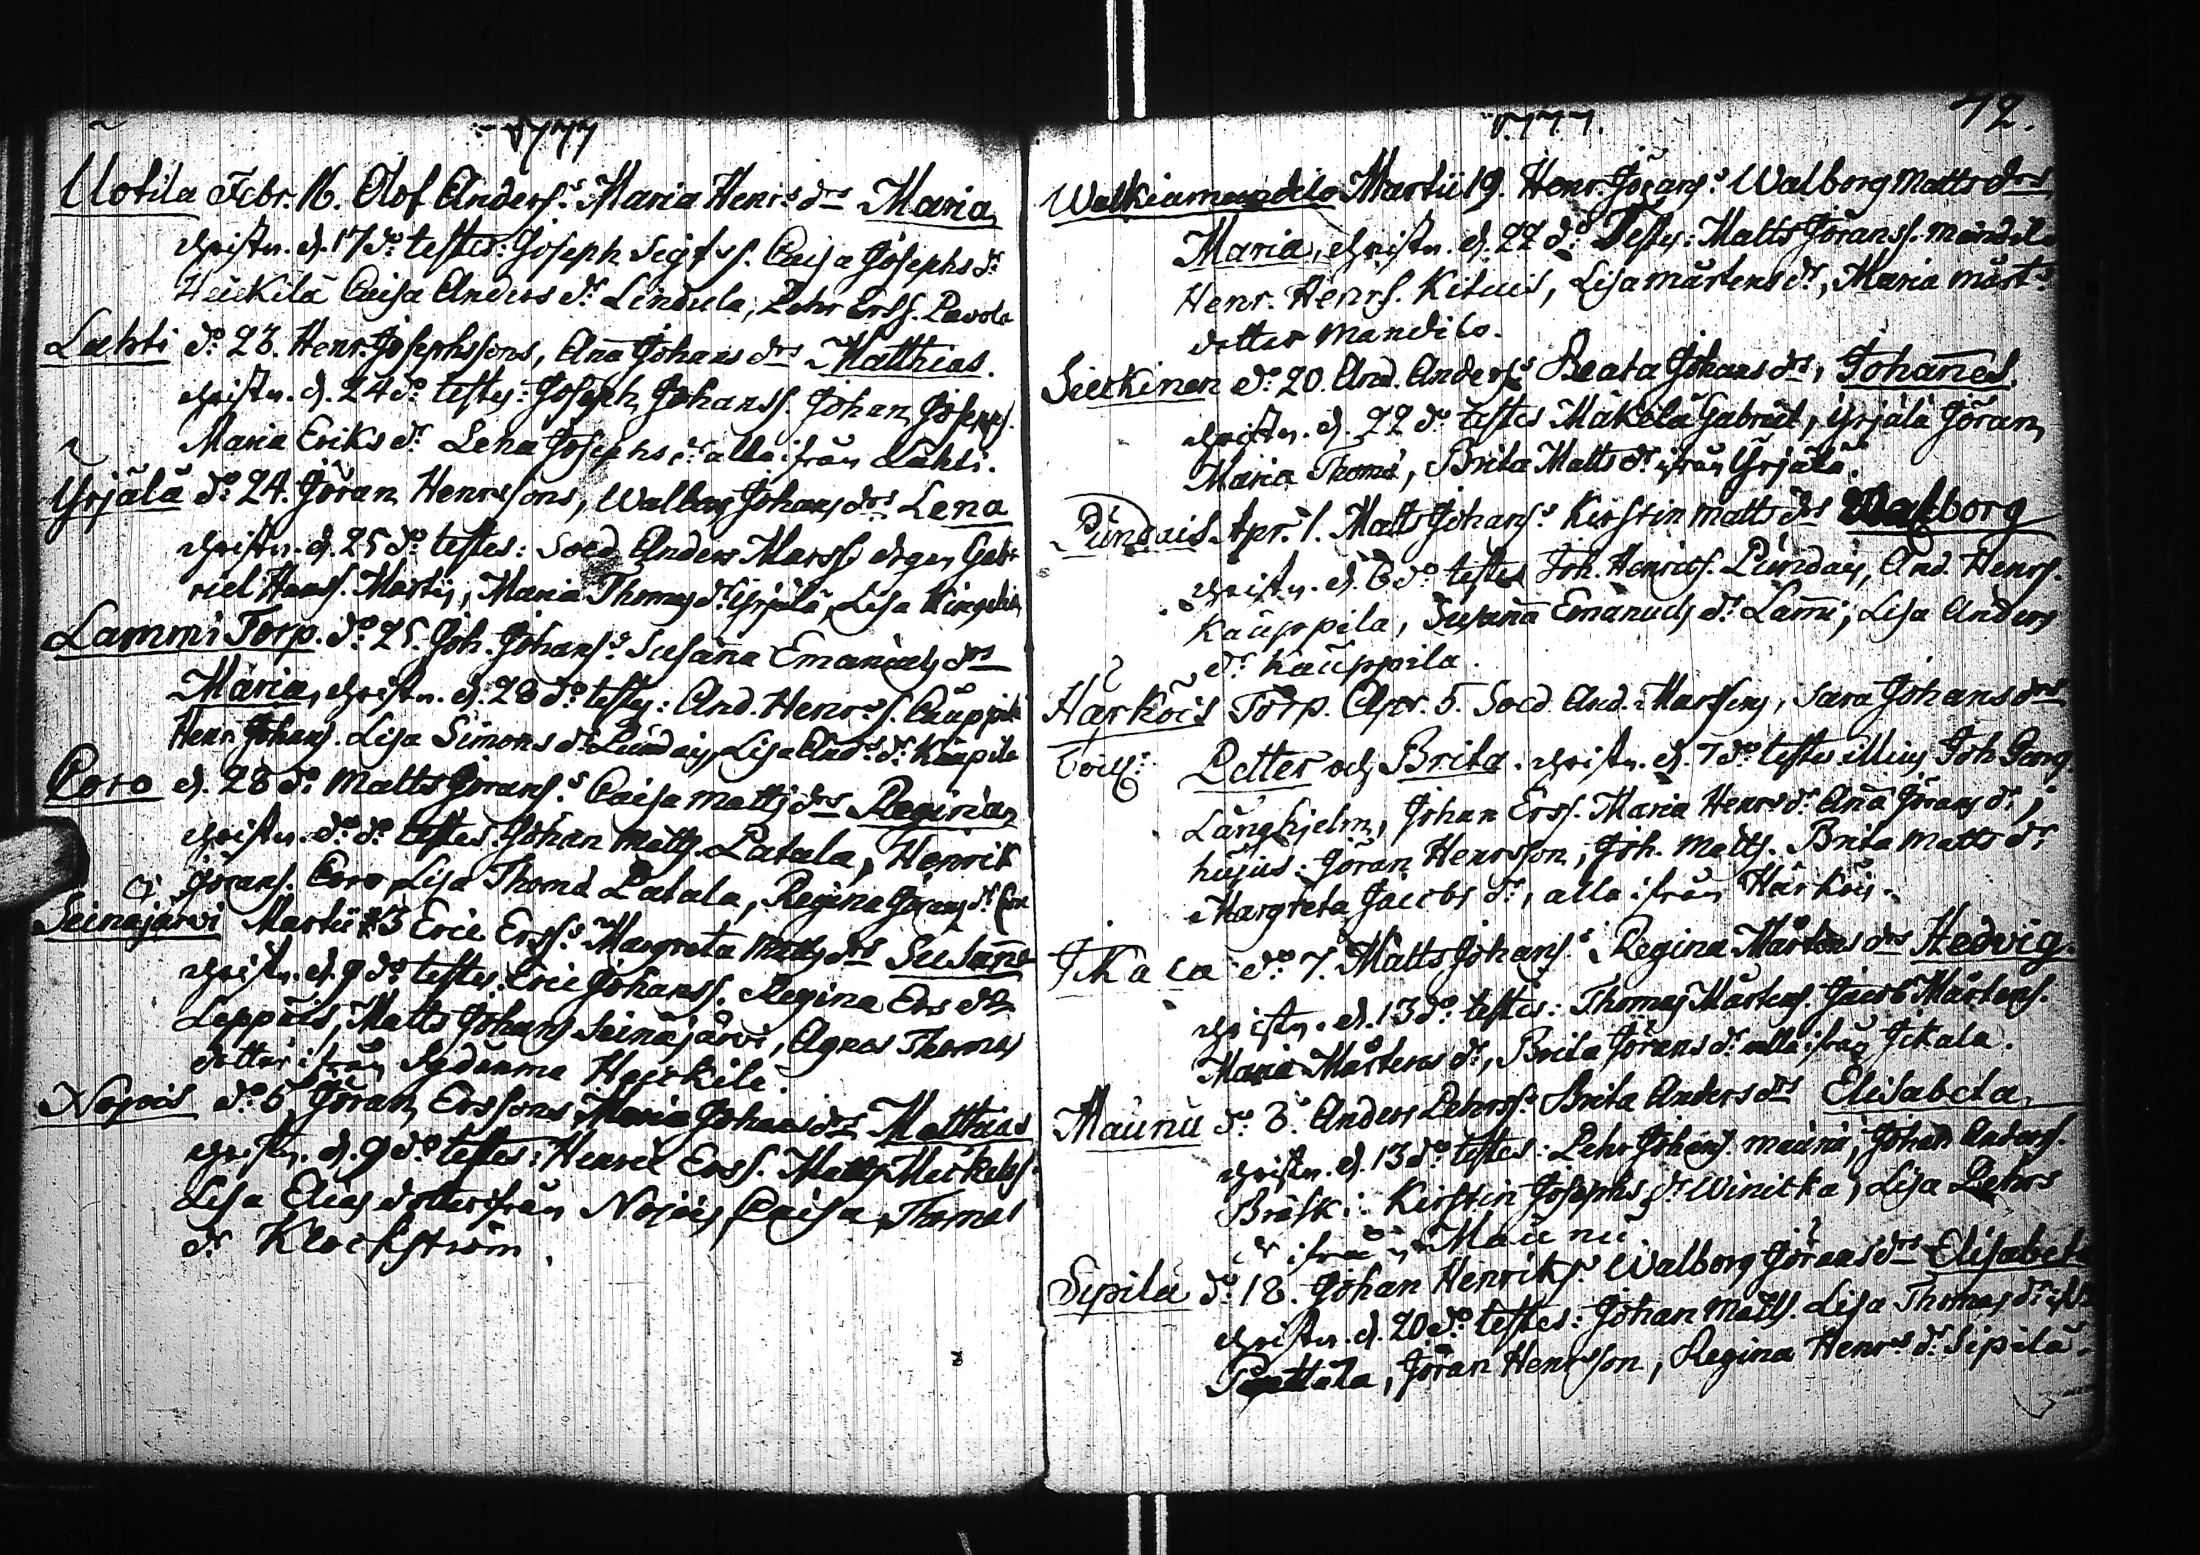 1777
Uotila Febr. 16. Olof Anders:s Maria Henrs drs Maria
Christn. d. 17 do testes: Joseph Sigfrs. Caisa Josephs dr
Heickilä Caisa Anders dr Lindula, Pehr Erss. Pavola
Lahti do 23. Henr. Josephssons, Aña Johans drs Matthias.
Christn. d. 24 do testes: Joseph Johanss. Johan Josephs.
Maria Eriks dr Lena Josephs dr alla ifrån Lahti.
Yrjälä do 24. Jöran Henrssons, Walborg Johans drs Lena
Christn. d. 25 do testes: Sold. Anders Marss. drgn Gab-
riel Hanss. Martis, Maria Thomas dr Yrjälä, Lisa
Lammi Torp. do 25. Joh. Johans:s Susaña Emanuels drs
Maria, Christn. d. 28 do testes: And. Henrs s. Cauppila
Henr. Johans. Lisa Simons dr Pundais, Lisa Ands dr Kaupila
Coro d. 28 do Matts Jörans:s Caisa Matts drs Regina
Christn. do do testes: Johan Matts. Patala, Henrik
Jörans. Coro, Lisa Thomæ Patala, Regina Jörans dr Coro
Seinäjärvi Martii 3 Eric Ers:s Margreta Matts drs Susaña
Christn. d. 9 do testes: Eric Johanss. Regina Ers dr
Leppäis, Matts Johans Seinäjärvi, Agnes Thomas
dotter ifrån Sydänma Heickilä.
Nojois do 6 Jöran Erssons Maria Johans drs Matthias
Christn. d. 9 do testes: Henric Erss. Matts Mickelss.
Lisa Elias dotter ifrån Nojois, Caisa Thomas
dr Klockström.
1777. 72.
Walkiamandilo Martii 19. Henr. Jörans:s Walborg Matts drs
Maria, Christn. d. 22 do Testes: Matts Jöranss. Mandilo
Henr. Henrs. Kituis, Lisa Mårtens dr, Maria Mårts
dotter Mandilo.
Sieckinen do 20. And. Anders:s Beata Johans drs, Johañes.
Christn. d. 22 do testes Mäkelä Gabriel, Yrjälä Jöran,
Maria Thomæ, Brita Matts dr ifrån Yrjälä.
Pundais Apr. 1. Matts Johans:s Kirstin Matts drs Walborg
Christn. d. 6 do testes Joh. Henricss. Pundais, And. Henrs.
Kauppila, Susaña Emanuels dr Lam̃i, Lisa Anders
dr Kauppila.
Härköis Torp. Apr. 5. Sold. And. Marssens, Sara Johans drs
Petter och Brita. Christn. d. 7 do testes illius Joh. Georg
Långhjelm, Johan Erss. Maria Henrs dr Aña Jörans dr;
hujus: Jöran Henrsson, Joh. Matts. Brita Matts dr
Margreta Jacobs dr, alla ifrån Härköis.
Ikala do 7. Matts Johans:s Regina Mårtens drs Hedvig.
Christn. d. 13 do testes: Thomas Mårtens. Jacob Mårtens.
Maria Mårtens dr, Brita Jörans dr alla ifrån Ikala.
Maunu do 8. Anders Pehrs:s Brita Anders drs Elisabeta
Christn. d. 13 do testes: Pehr Johans. Maunu, Johan Anders.
Bräski. Kirstin Josephs dr Winicka, Lisa Pehrs
dr ifrån Maunu
Sipilä do 18. Johan Henriks:s Walborg Jörans drs Elisabeta
Christn. d. 20. do testes: Johan Matts. Lisa Thomas dr
Pattala, Jöran Henrsson, Regina Henrs dr Sipilä.